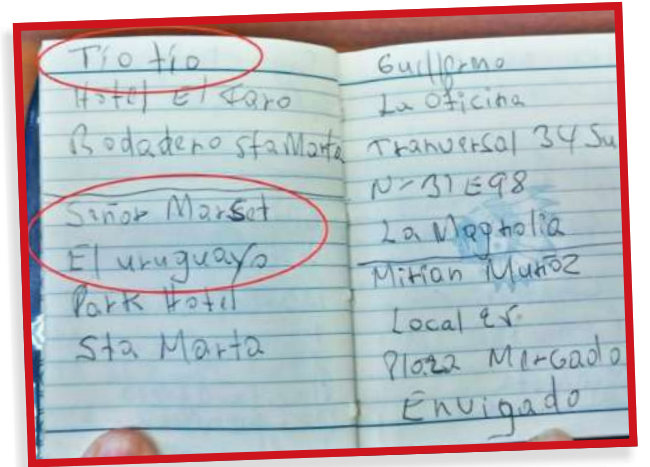 Tío tío
Hotel El Faro
Rodadero Sta Marta
Señor Marset
El uruguayo
Park Hotel
Sta Marta
Guillermo
La Oficina
Tranversal 34 Su
Nº 31 E 98
La Magnolia
Mirian Muñoz
Local
Plaza Mercado
Envigado